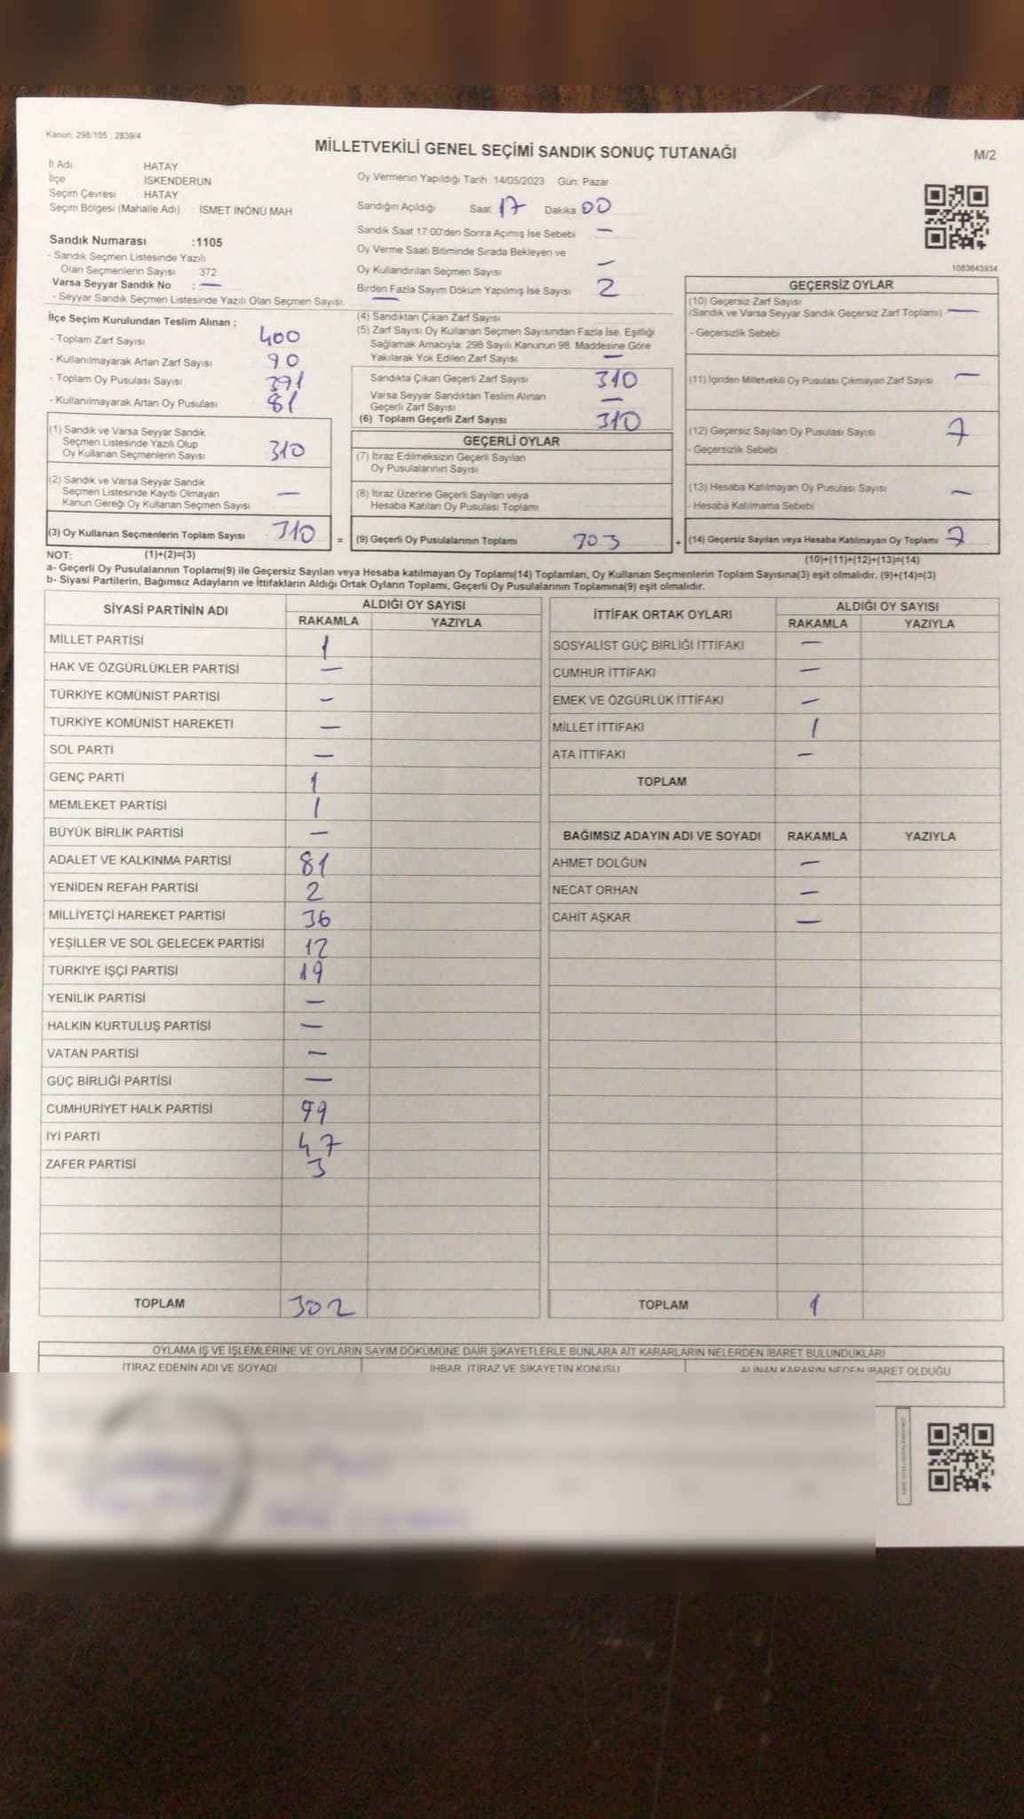 Kanun: 298/105 , 2839/4
MİLLETVEKİLİ GENEL SEÇİMİ SANDIK SONUÇ TUTANAĞI
M/2
İl Adı HATAY
İlçe İSKENDERUN
Seçim Çevresi HATAY
Seçim Bölgesi (Mahalle Adı) İSMET İNÖNÜ MAH
Oy Vermenin Yapıldığı Tarih 14/05/2023 Gün: Pazar
Sandığın Açıldığı Saat 17 Dakika 00
Sandık Saat 17:00'den Sonra Açımış İse Sebebi —
Oy Verme Saati Bitiminde Sırada Bekleyen ve
Oy Kullandırılan Seçmen Sayısı —
Birden Fazla Sayım Döküm Yapılmış İse Sayısı 2
1083643934
Sandık Numarası :1105
- Sandık Seçmen Listesinde Yazılı
Olan Seçmenlerin Sayısı 372
Varsa Seyyar Sandık No : —
- Seyyar Sandık Seçmen Listesinde Yazılı Olan Seçmen Sayısı: —
İlçe Seçim Kurulundan Teslim Alınan ;
- Toplam Zarf Sayısı 400
- Kullanılmayarak Artan Zarf Sayısı 90
- Toplam Oy Pusulası Sayısı 391
- Kullanılmayarak Artan Oy Pusulası 81
(1) Sandık ve Varsa Seyyar Sandık
Seçmen Listesinde Yazılı Olup
Oy Kullanan Seçmenlerin Sayısı 310
(2) Sandık ve Varsa Seyyar Sandık
Seçmen Listesinde Kayıtlı Olmayan
Kanun Gereği Oy Kullanan Seçmen Sayısı —
(3) Oy Kullanan Seçmenlerin Toplam Sayısı 310
(4) Sandıktan Çıkan Zarf Sayısı
(5) Zarf Sayısı Oy Kullanan Seçmen Sayısından Fazla İse, Eşitliği
Sağlamak Amacıyla: 298 Sayılı Kanunun 98. Maddesine Göre
Yakılarak Yok Edilen Zarf Sayısı —
Sandıkta Çıkan Geçerli Zarf Sayısı 310
Varsa Seyyar Sandıktan Teslim Alınan
Geçerli Zarf Sayısı —
(6) Toplam Geçerli Zarf Sayısı 310
GEÇERLİ OYLAR
(7) İtiraz Edilmeksizin Geçerli Sayılan
Oy Pusulalarının Sayısı
(8) İtiraz Üzerine Geçerli Sayılan veya
Hesaba Katılan Oy Pusulası Toplamı
= (9) Geçerli Oy Pusulalarının Toplamı 303
GEÇERSİZ OYLAR
(10) Geçersiz Zarf Sayısı
(Sandık ve Varsa Seyyar Sandık Geçersiz Zarf Toplamı) —
- Geçersizlik Sebebi
(11) İçinden Milletvekili Oy Pusulası Çıkmayan Zarf Sayısı —
(12) Geçersiz Sayılan Oy Pusulası Sayısı 7
- Geçersizlik Sebebi
(13) Hesaba Katılmayan Oy Pusulası Sayısı —
- Hesaba Katılmama Sebebi
+ (14) Geçersiz Sayılan veya Hesaba Katılmayan Oy Toplamı 7
NOT: (1)+(2)=(3)
(10)+(11)+(12)+(13)=(14)
a- Geçerli Oy Pusulalarının Toplamı(9) ile Geçersiz Sayılan veya Hesaba katılmayan Oy Toplamı(14) Toplamları, Oy Kullanan Seçmenlerin Toplam Sayısına(3) eşit olmalıdır. (9)+(14)=(3)
b- Siyasi Partilerin, Bağımsız Adayların ve İttifakların Aldığı Ortak Oyların Toplamı, Geçerli Oy Pusulalarının Toplamına(9) eşit olmalıdır.
SİYASİ PARTİNİN ADI ALDIĞI OY SAYISI
RAKAMLA YAZIYLA
MİLLET PARTİSİ 1
HAK VE ÖZGÜRLÜKLER PARTİSİ —
TÜRKİYE KOMÜNİST PARTİSİ —
TÜRKİYE KOMÜNİST HAREKETİ —
SOL PARTİ —
GENÇ PARTİ 1
MEMLEKET PARTİSİ 1
BÜYÜK BİRLİK PARTİSİ —
ADALET VE KALKINMA PARTİSİ 81
YENİDEN REFAH PARTİSİ 2
MİLLİYETÇİ HAREKET PARTİSİ 36
YEŞİLLER VE SOL GELECEK PARTİSİ 12
TÜRKİYE İŞÇİ PARTİSİ 19
YENİLİK PARTİSİ —
HALKIN KURTULUŞ PARTİSİ —
VATAN PARTİSİ —
GÜÇ BİRLİĞİ PARTİSİ —
CUMHURİYET HALK PARTİSİ 99
İYİ PARTİ 47
ZAFER PARTİSİ 3
TOPLAM 302
İTTİFAK ORTAK OYLARI ALDIĞI OY SAYISI
RAKAMLA YAZIYLA
SOSYALİST GÜÇ BİRLİĞİ İTTİFAKI —
CUMHUR İTTİFAKI —
EMEK VE ÖZGÜRLÜK İTTİFAKI —
MİLLET İTTİFAKI 1
ATA İTTİFAKI —
TOPLAM
BAĞIMSIZ ADAYIN ADI VE SOYADI RAKAMLA YAZIYLA
AHMET DOLĞUN —
NECAT ORHAN —
CAHİT AŞKAR —
TOPLAM 1
OYLAMA İŞ VE İŞLEMLERİNE VE OYLARIN SAYIM DÖKÜMÜNE DAİR ŞİKAYETLERLE BUNLARA AİT KARARLARIN NELERDEN İBARET BULUNDUKLARI
İTİRAZ EDENİN ADI VE SOYADI İHBAR, İTİRAZ VE ŞİKAYETİN KONUSU ALINAN KARARIN NEDEN İBARET OLDUĞU